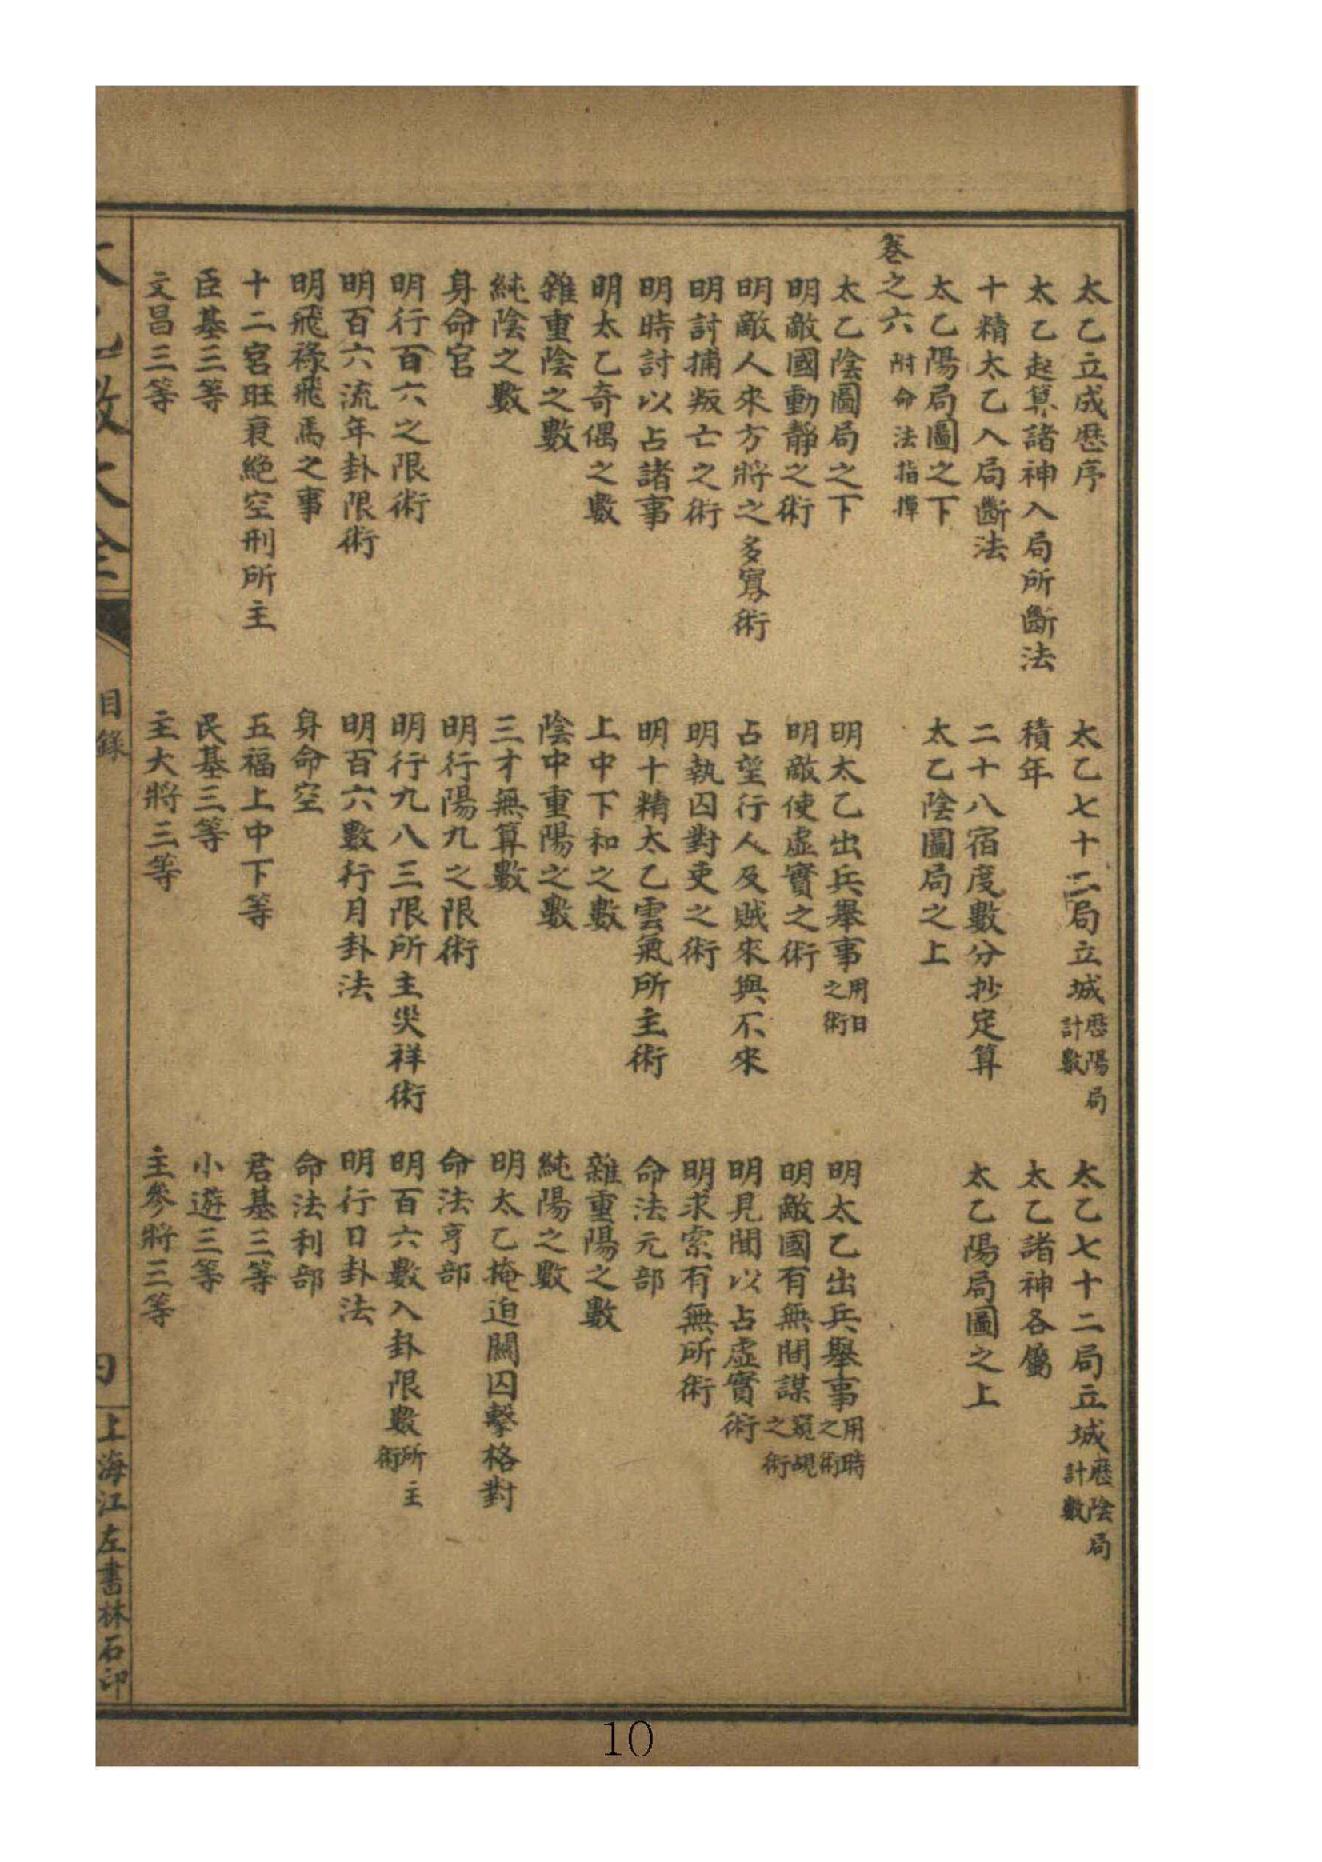 太乙立成歷序　太乙七十二局立城歷陽局計數　太乙七十二局立城歷陰局計數
太乙起算諸神入局所斷法　積年　太乙諸神各屬
十精太乙入局斷法　二十八宿度數分抄定算　太乙陽局圖之上
太乙陽局圖之下　太乙陰圖局之上
卷之六　附命法指揮
太乙陰圖局之下　明太乙出兵舉事用日之術　明太乙出兵舉事用時之術
明敵國動靜之術　明敵使虛實之術　明敵國有無間諜窺覘之術
明敵人來方將之多寡術　占望行人及賊來與不來　明見聞以占虛實術
明討捕叛亡之術　明執囚對吏之術　明求索有無所術
明時討以占諸事　明十精太乙雲氣所主術　命法元部
明太乙奇偶之數　上中下和之數　雜重陽之數
雜重陰之數　陰中重陽之數　純陽之數
純陰之數　三才無算數　明太乙掩迫關囚擊格對
身命宮　明行陽九之限術　命法亨部
明行百六之限術　明行九八三限所主災祥術　明百六數入卦限數所主術
明百六流年卦限術　明百六數行月卦法　明行日卦法
明飛祿飛馬之事　身命空　命法利部
十二宮旺衰絕空刑所主　五福上中下等　君基三等
臣基三等　民基三等　小遊三等
文昌三等　主大將三等　主參將三等
太乙數大全　目錄　四　上海江左書林石印
10